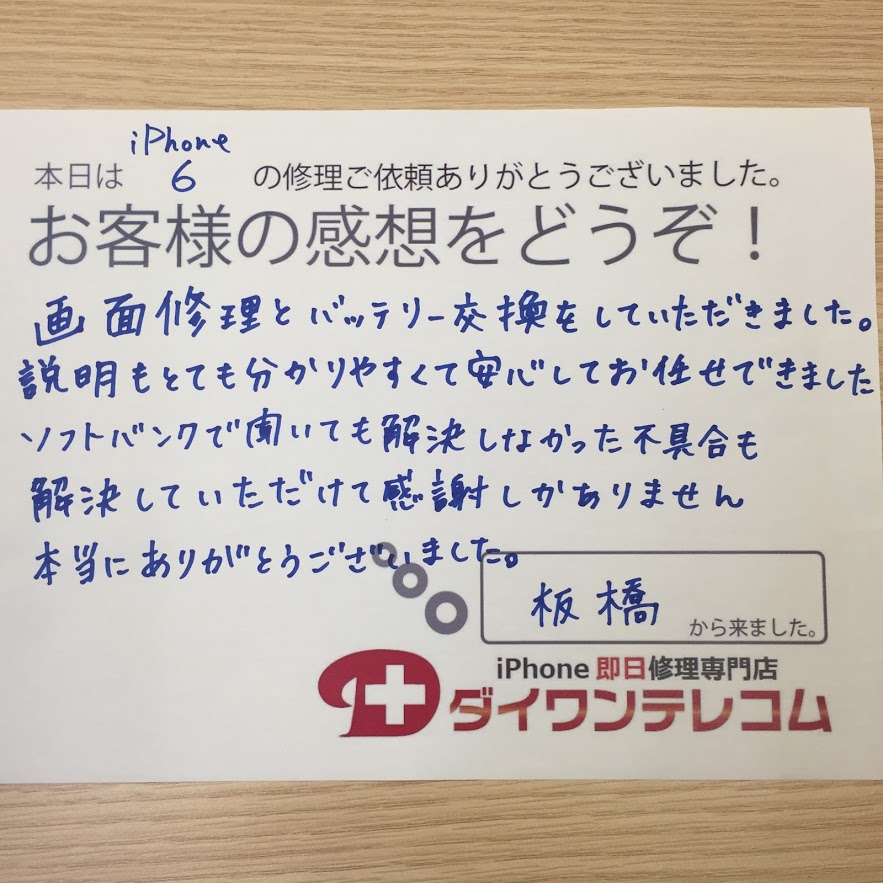 iPhone
本日は 6 の修理ご依頼ありがとうございました。
お客様の感想をどうぞ！
画面修理とバッテリー交換をしていただきました。
説明もとても分かりやすくて安心してお任せできました
ソフトバンクで聞いても解決しなかった不具合も
解決していただけて感謝しかありません
本当にありがとうございました。
板橋 から来ました。
iPhone 即日修理専門店
ダイワンテレコム